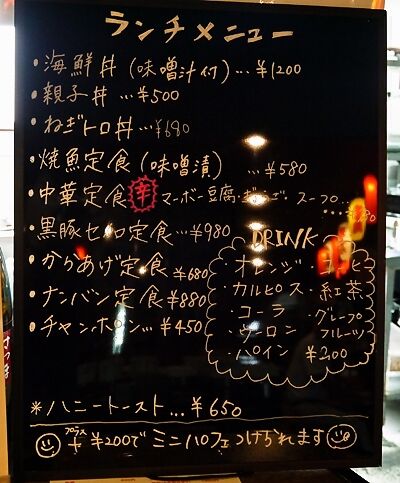 ランチメニュー
・海鮮丼（味噌汁付）…¥1200
・親子丼…¥500
・ねぎトロ丼…¥680
・焼魚定食（味噌漬）…¥580
・中華定食 辛 マーボー豆腐・ぎょーざ・スープ…
・黒豚ヒレカツ定食…¥980
・からあげ定食 ¥680
・ナンバン定食 ¥880
・チャンポン…¥450
DRINK
・オレンジ・コーヒー
・カルピス・紅茶
・コーラ・グレープ
・ウーロン・フルーツ
・パイン ¥200
*ハニートースト…¥650
プラス
+¥200で ミニパフェつけられます